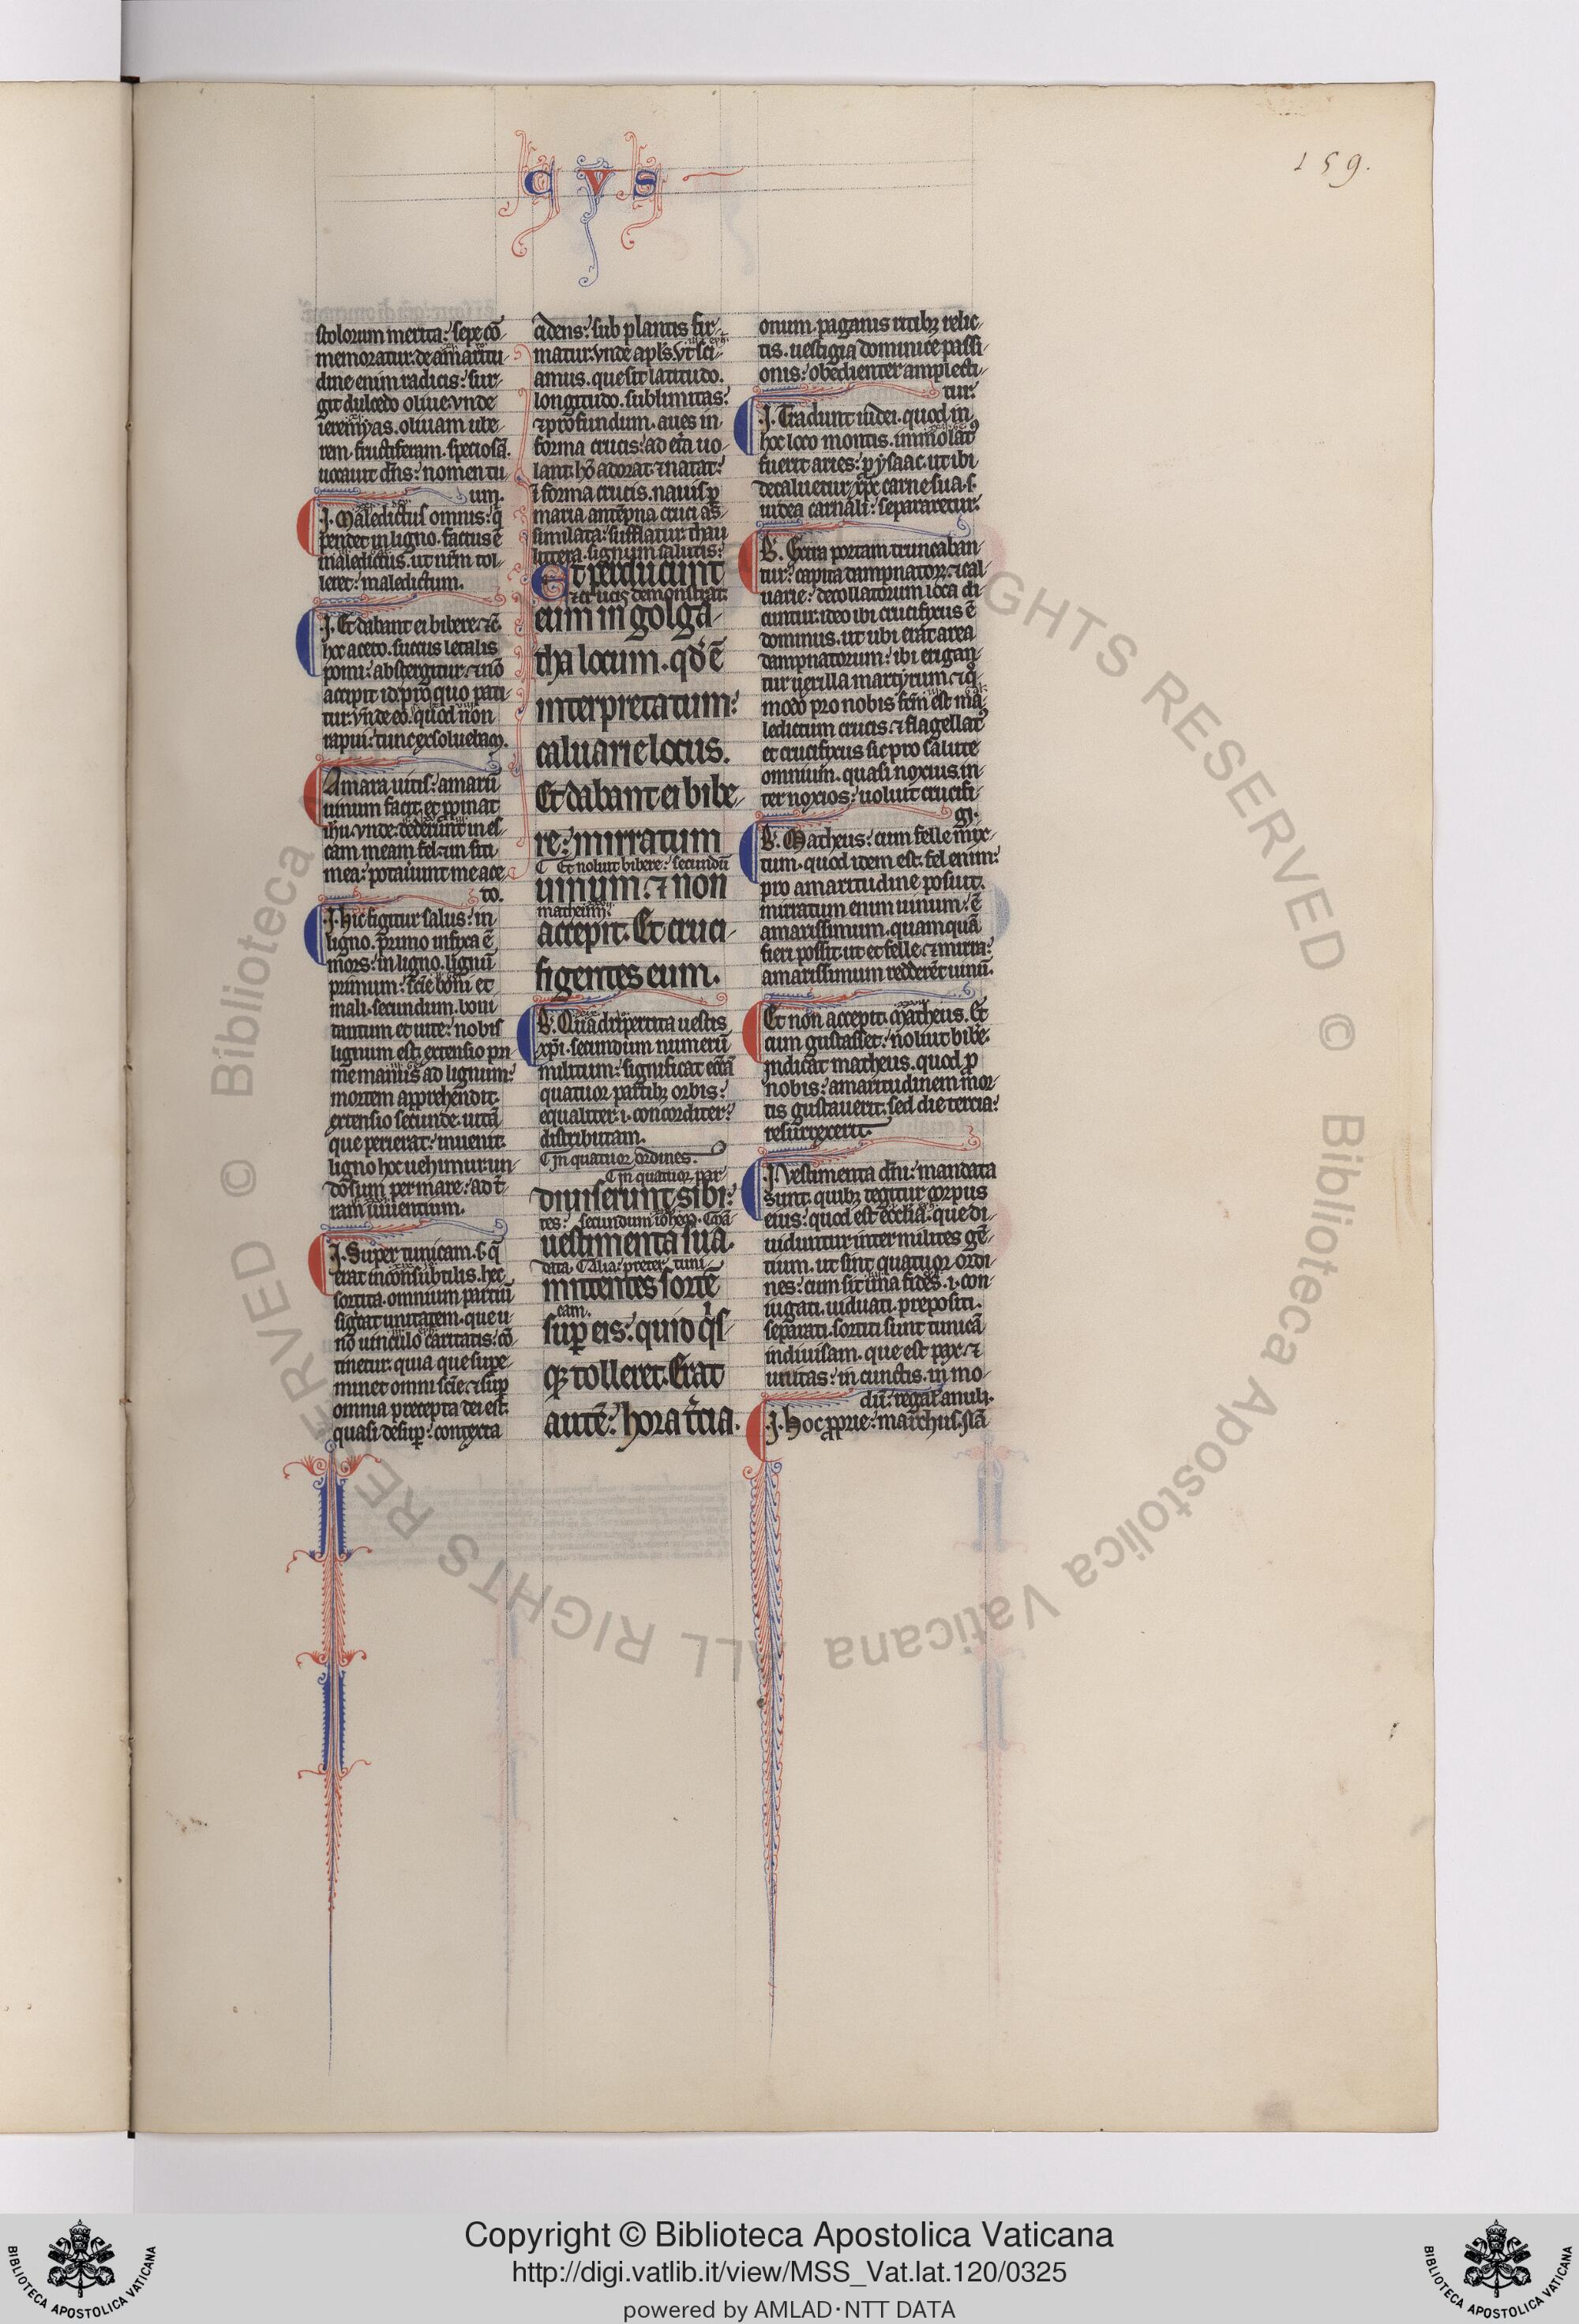 159.
C V S
stolorum merita: sepe cō-
memoratur. de amaritu-
dine enim radicis: sur-
git dulcedo oliue. vnde
ieremyas. oliuam ube-
rem. fructiferam. speciosā.
uocauit dn̄s: nomen tu-
um.
.J. Maledictus omnis: q̄
pendet in ligno. factus ē
maledictus. ut nr̄m tol-
leret: maledictum.
.J. Et dabant ei bibere. ⁊c̄.
hoc aceto. succus letalis
pomi: abstergitur. ⁊ nō
accepit id pro quo pati-
tur. vnde eo. quod non
rapui: tunc exsoluebam.
Amara uitis: amarū
uinum facit. et ꝓpinat
ih̄u. vnde. dederunt in es-
cam meam fel. ⁊ in siti
mea: potauunt me ace-
to.
.J. hic figitur salus: in
ligno. primo infixa ē
mors: in ligno. lignū
primum: scīe boni et
mali. secundum. boni
tantum et uite: nobis
lignum est. extensio pri-
me manus ad lignum:
mortem apprehendit.
extensio secunde. uitā
que perierat: inuenit.
ligno hoc uehimur. un-
dosum per mare: ad t̄-
ram uiuentium.
.J. Super tunicam. s. q̄
erat inconsubtilis. hec
sortita. omnium partiū
sig̅cat unitatem. que u-
no uinculo caritatis: cō-
tinetur. quia que supe-
minet omni scīe. ⁊ sup̄
omnia precepta dei est.
quasi desup̄: contexta
cidens: sub plantis fir-
matur. vnde apl̄s. vt sci-
amus. que sit latitudo.
longitudo. sublimitas:
⁊ profundum. aues in
forma crucis: ad et̄a uo-
lant. hō adorat. ⁊ natat:
ī forma crucis. nauis ꝑ
maria antēpna cruci as-
similata: sufflatur. thau
littera. signum salutis:
Et perducunt
⁊ crucis demonstrat.
eum in golga-
tha locum. qd̓ ē
interpretatum:
caluarie locus.
Et dabant ei bibe-
re: mirratum
Et noluit bibere: secundū
uinum: ⁊ non
matheum:
accepit. Et cruci-
figentes eum.
B. Quadripertita uestis
xp̄i. secundum numerū
militum: significat eccl̄iā
quatuor partibꝫ orbis:
equaliter. i. concorditer:
distributam.
In quatuor ordines.
In quatuor par-
diuiserunt sibi:
tes: secundum ioh̄em.
uestimenta sua.
mittentes sortē
sup̄ eis: quid q̓s-
qꝫ tolleret. Erat
autē: hora t̄cia.
onum. paganis ritibꝫ relic-
tis. uestigia dominice passi-
onis: obedienter amplecti-
tur.
.J. Tradunt iudei. quod in
hoc loco montis. immolat᷒
fuerit aries: ꝑ ysaac. ut ibi
decaluetur xp̄c carne sua. s.
iudea carnali: separaretur.
B. Extra portam truncaban-
tur: capita dampnatoꝝ. ⁊ cal-
uarie: decollatorum loca di-
cuntur. ideo ibi crucifixus ē
dominus. ut ubi erat area
dampnatorum: ibi erigan-
tur uexilla martyrum. ⁊ q̊
modo pro nobis fc̄m est ma-
ledictum crucis. ⁊ flagellat᷒
et crucifixus sic pro salute
omnium. quasi noxius. in-
ter noxios: uoluit crucifi-
gi.
B. Matheus: cum felle mix-
tum. quod idem est. fel enim:
pro amaritudine posuit.
mirratum enim uinum: ē
amarissimum. quamquā
fieri possit ut et felle. ⁊ mirra:
amarissimum redderēt uinū.
Et non accepit. Matheus. Et
cum gustasset. noluit bibe.
Indicat matheus. quod ꝓ
nobis: amaritudinem mor-
tis gustauerit. sed die tercia:
resurrexerit.
.J. Vestimenta dn̄i: mandata
sunt. quibꝫ tegitur corpus
eius: quod est eccl̄ia. que di-
uiduntur inter milites gē-
tium. ut sint quatuor ordi-
nes: cum sit una fides. i. con-
iugati. uiduati. prepositi.
separati. sortiti sunt tunicā
indiuisam. que est pax. ⁊
unitas: in cunctis. in mo-
dū: regal̄ anuli.
.J. Hoc ꝓprie: marchus. Istā
Copyright © Biblioteca Apostolica Vaticana
http://digi.vatlib.it/view/MSS_Vat.lat.120/0325
powered by AMLAD·NTT DATA
BIBLIOTECA APOSTOLICA VATICANA
BIBLIOTECA APOSTOLICA VATICANA
© Biblioteca Apostolica Vaticana ALL RIGHTS RESERVED © Biblioteca
RIGHTS RESERVED